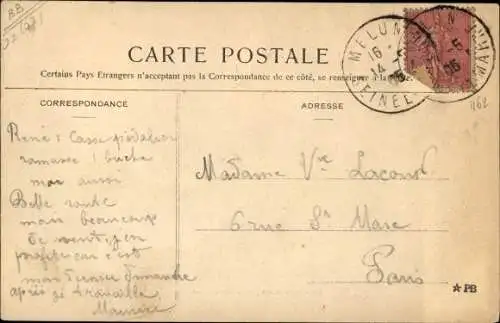 B.B.
CARTE POSTALE
Certains Pays Etrangers n'acceptant pas la Correspondance de ce côté, se renseigner à la
CORRESPONDANCE
ADRESSE
MELUN
SEINE
René a Cassé pédalier
ramassé 1 bûche
moi aussi
Belle route
mais beaucoup
de vent, j'en
profite car c'est
mon dernier dimanche
après je travaille
Maurice
Madame Vve Lacour
6 rue St Marc
Paris
★PB
1162